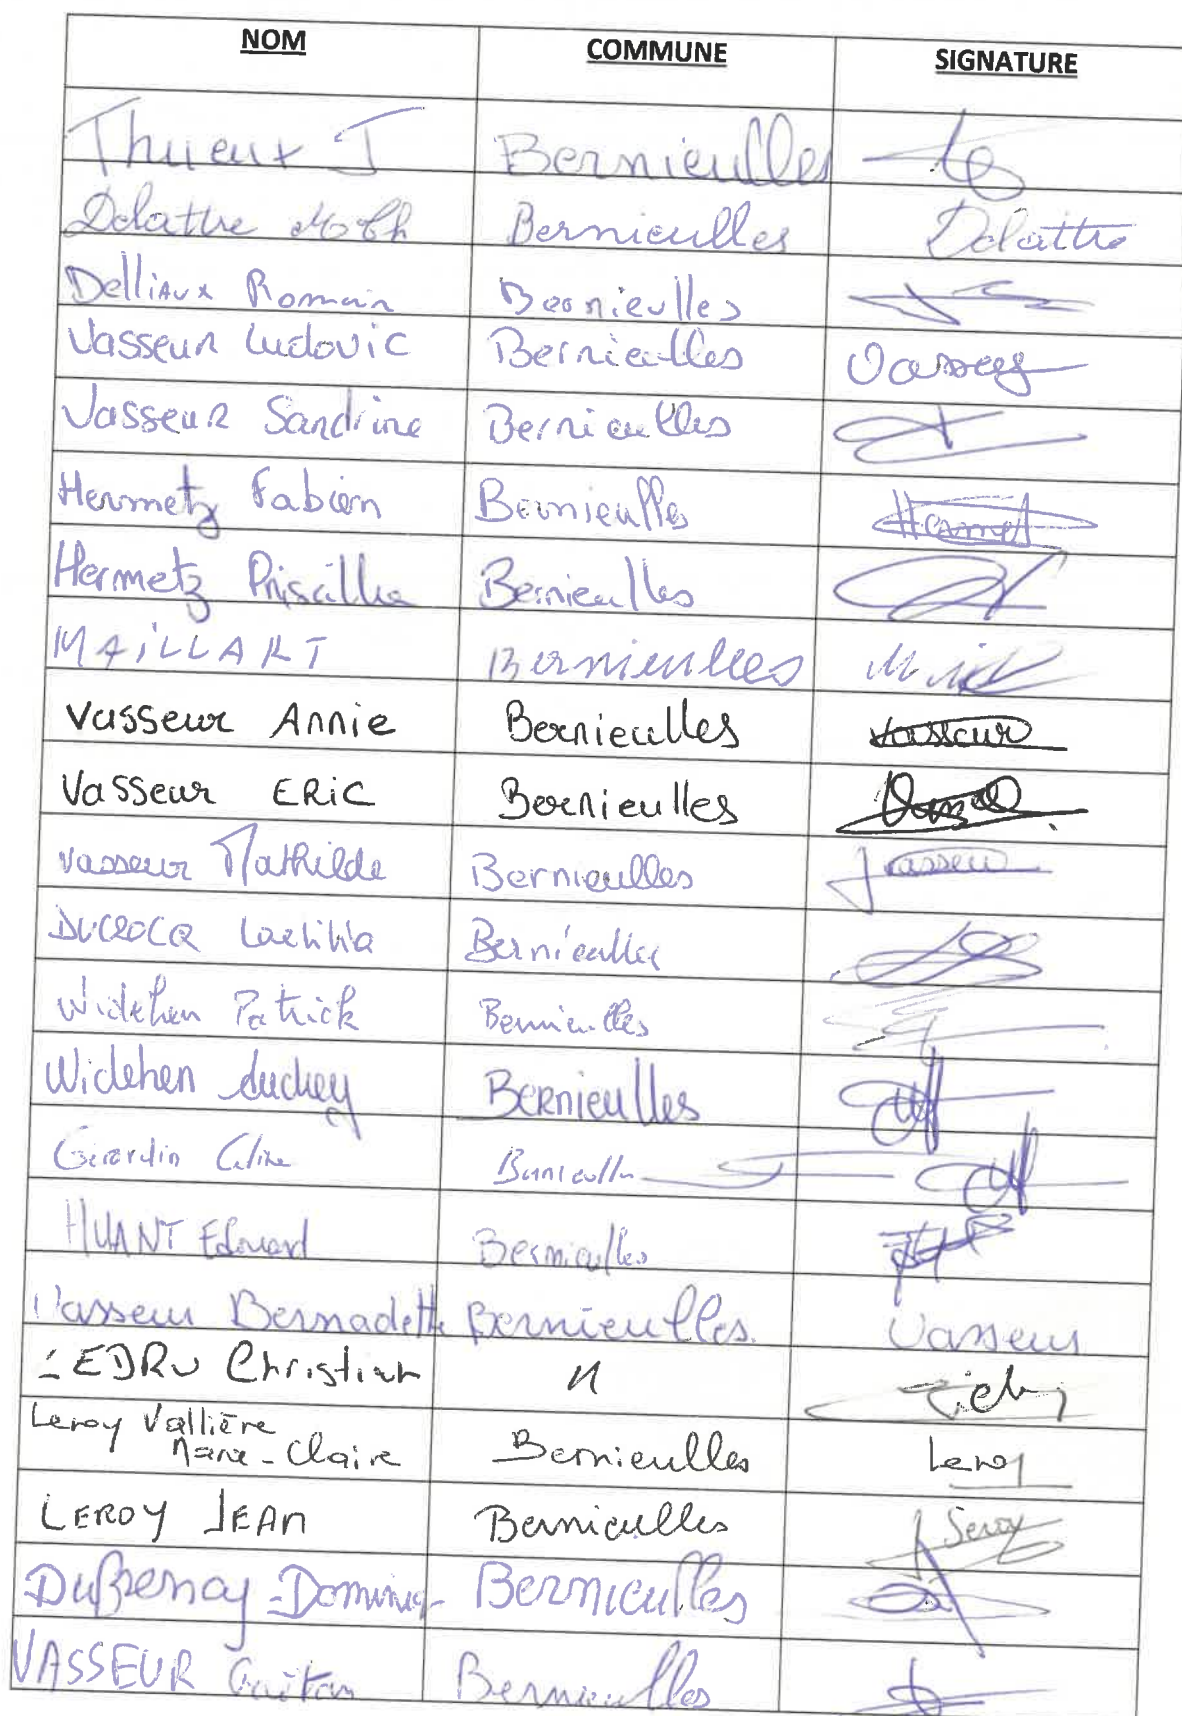 NOM COMMUNE SIGNATURE
Thueux J Bernieulles
Delattre Bernieulles Delattre
Delliaux Romain Bernieulles
Vasseur Ludovic Bernieulles Vasseur
Vasseur Sandrine Bernieulles
Hermetz Fabien Bernieulles Hermet
Hermetz Priscilla Bernieulles
MAiLLART Bernieulles
Vasseur Annie Bernieulles Vasseur
Vasseur ERiC Bernieulles
Vasseur Mathilde Bernieulles Vasseur
DUCROCQ Laetitia Bernieulles
Widehen Patrick Bernieulles
Widehen Bernieulles
Girardin Céline Bernieulles
HUANT Edouard Bernieulles
Vasseur Bernadette Bernieulles. Vasseur
LEDRU Christian "
Leroy Vallière
Marie-Claire Bernieulles Leroy
LEROY JEAN Bernieulles J Leroy
Dufrenoy Bernieulles
VASSEUR Gaëtan Bernieulles